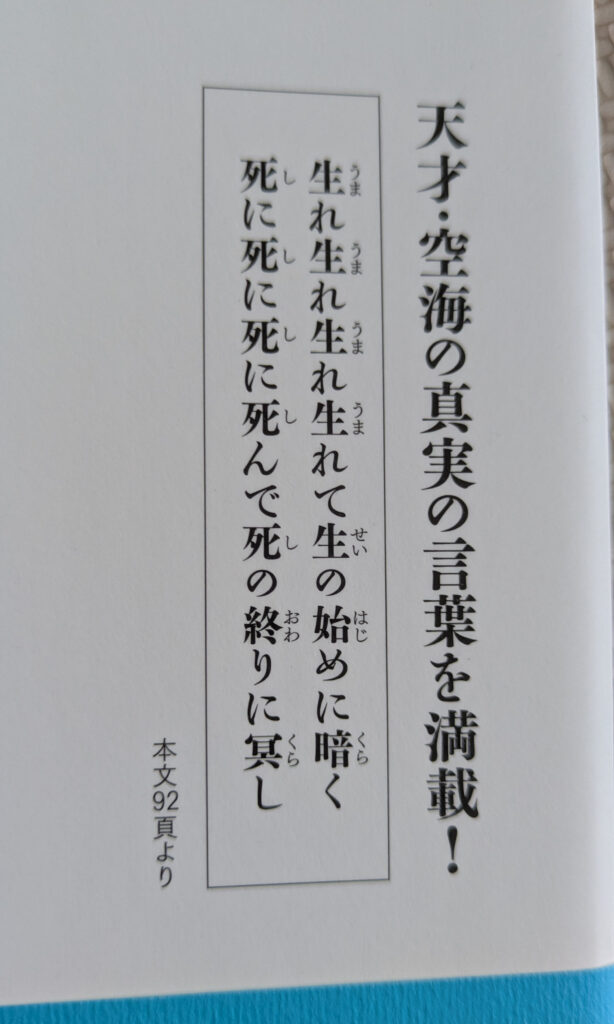 天才・空海の真実の言葉を満載！
生れ生れ生れ生れて生の始めに暗く
死に死に死に死んで死の終りに冥し
本文92頁より